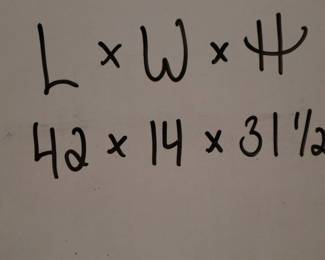 L x W x H
42 x 14 x 31 1/2